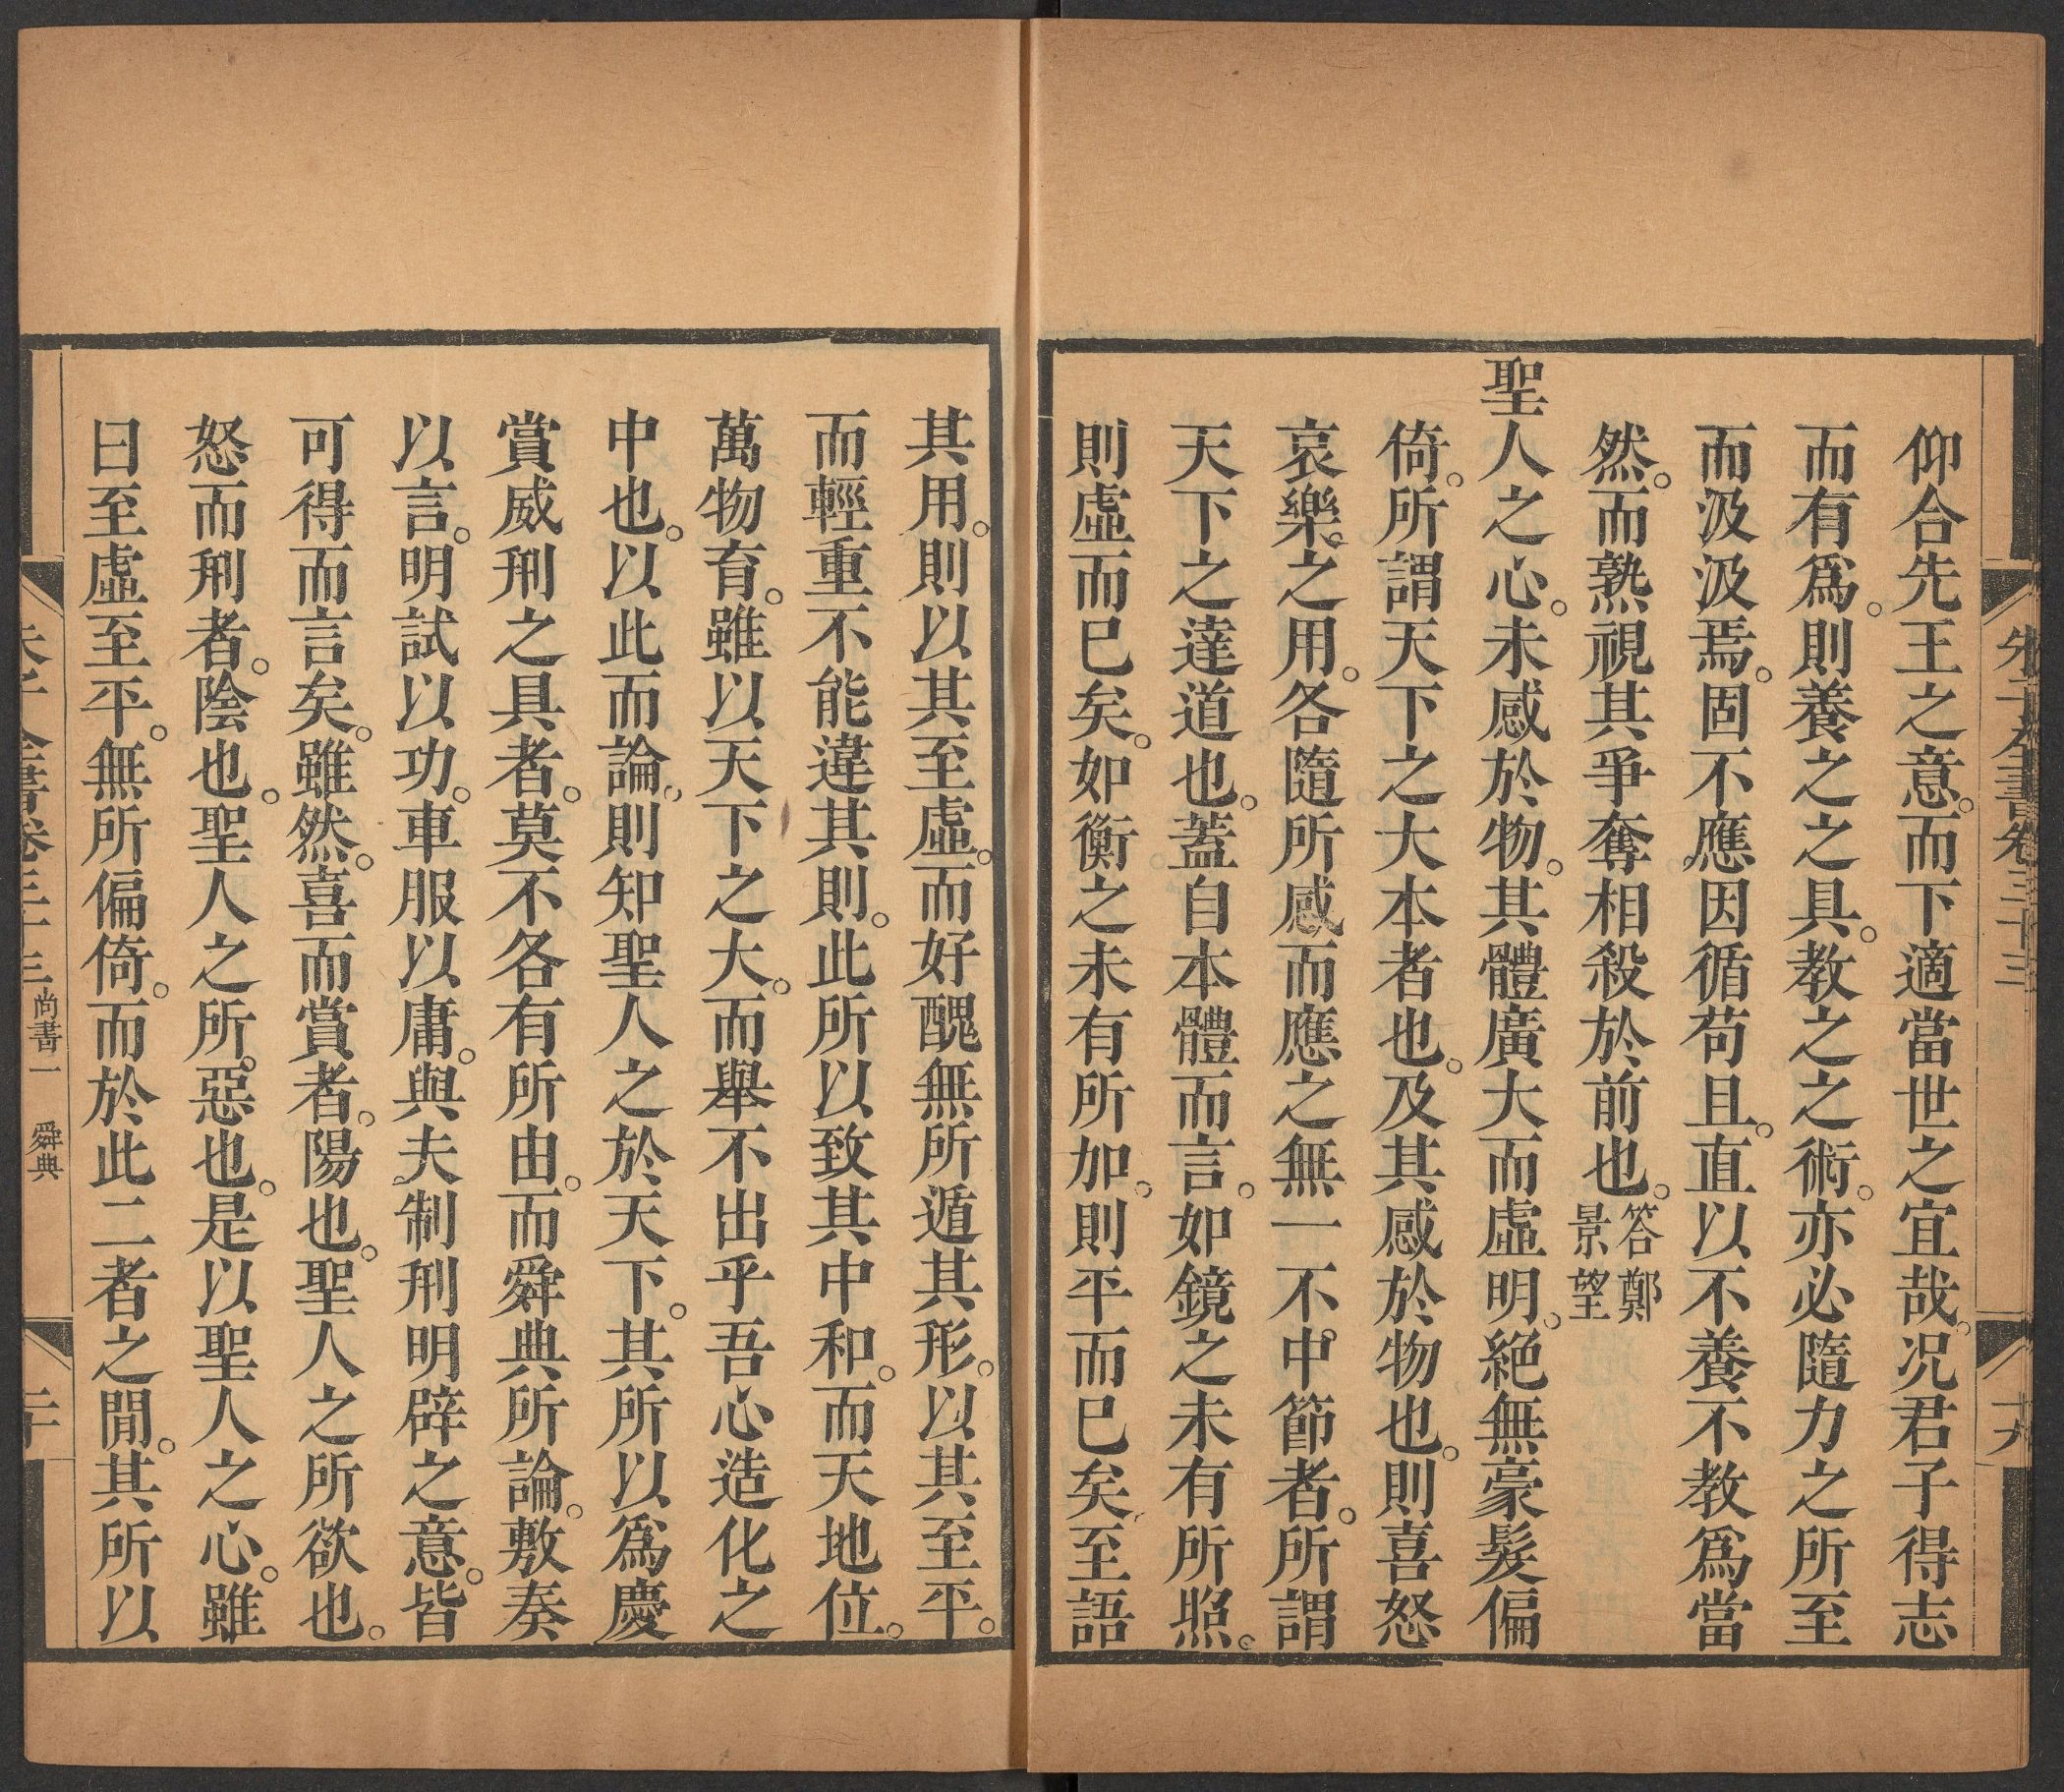 朱子全書卷三十三
十九
仰合先王之意。而下適當世之宜哉。况君子得志
而有爲。則養之之具。教之之術。亦必隨力之所至
而汲汲焉。固不應因循苟且。直以不養不教爲當
然。而熟視其爭奪相殺於前也。答鄭景望
聖人之心。未感於物。其體廣大而虛明。絕無豪髮偏
倚。所謂天下之大本者也。及其感於物也。則喜怒
哀樂。之用。各隨所感而應之無一不中節者。所謂
天下之達道也。蓋自本體而言。如鏡之未有所照。
則虛而已矣。如衡之未有所加。則平而已矣至語
其用。則以其至虛。而好醜無所遁其形。以其至平。
而輕重不能違其則。此所以致其中和。而天地位。
萬物育。雖以天下之大。而舉不出乎吾心造化之
中也。以此而論。則知聖人之於天下。其所以爲慶
賞威刑之具者。莫不各有所由。而舜典所論。敷奏
以言。明試以功。車服以庸。與夫制刑明辟之意。皆
可得而言矣。雖然。喜而賞者。陽也。聖人之所欲也。
怒而刑者。陰也。聖人之所。惡也。是以聖人之心。雖
曰至虛至平。無所偏倚。而於此二者之閒。其所以
朱子全書卷三十三 尚書一 舜典
二十